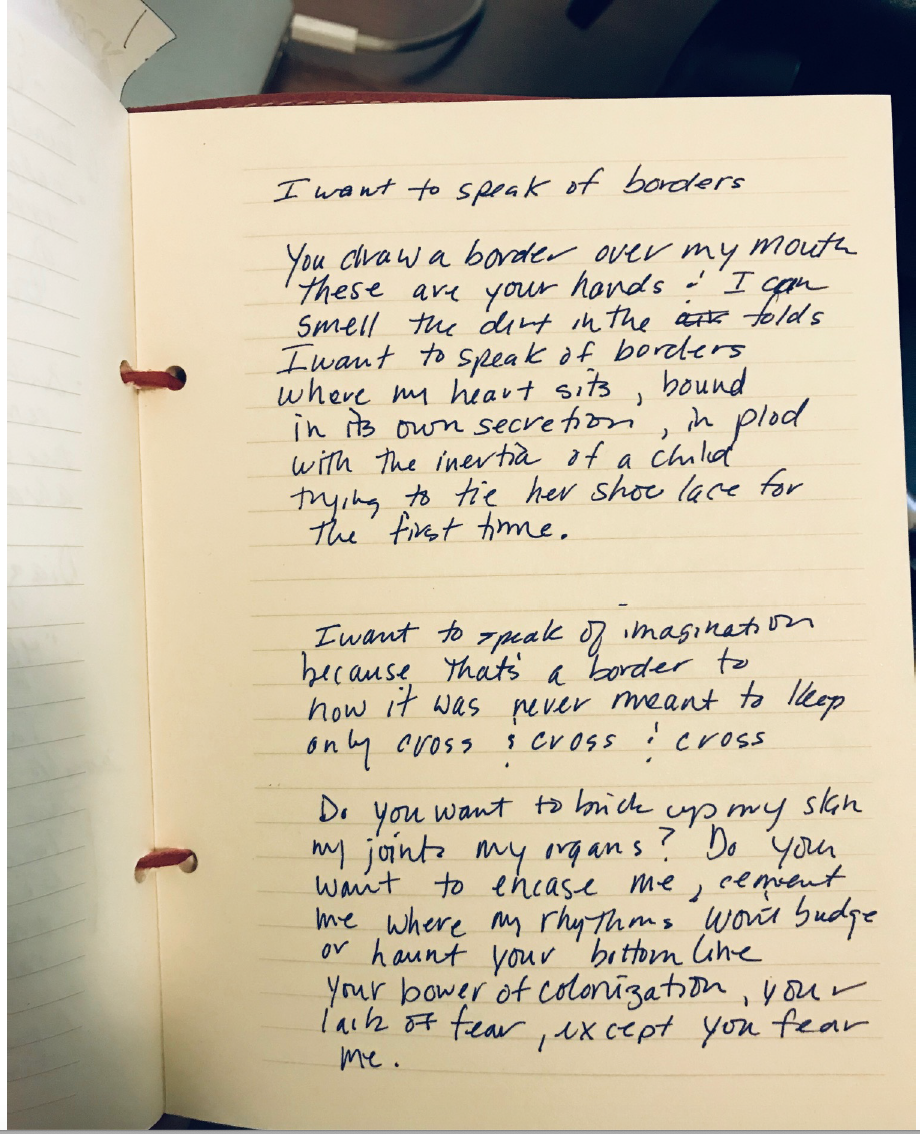 I want to speak of borders
You draw a border over my mouth
these are your hands & I can
smell the dirt in the folds
I want to speak of borders
where my heart sits, bound
in its own secretion, in plod
with the inertia of a child
trying to tie her shoe lace for
the first time.
I want to speak of imagination
because that's a border to
now it was never meant to keep
only cross & cross & cross
Do you want to brick up my skin
my joints my organs? Do you
want to encase me, cement
me where my rhythms won't budge
or haunt your bottom line
your power of colonization, your
lack of fear, except you fear
me.